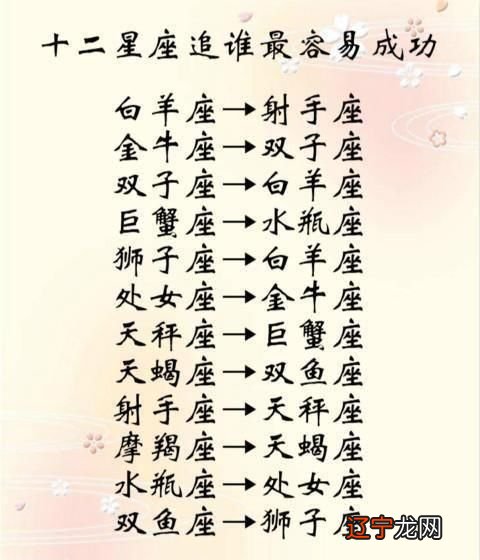 十二星座追谁最容易成功
白羊座→射手座
金牛座→双子座
双子座→白羊座
巨蟹座→水瓶座
狮子座→白羊座
处女座→金牛座
天秤座→巨蟹座
天蝎座→双鱼座
射手座→天秤座
摩羯座→天蝎座
水瓶座→处女座
双鱼座→狮子座
辽宁龙网